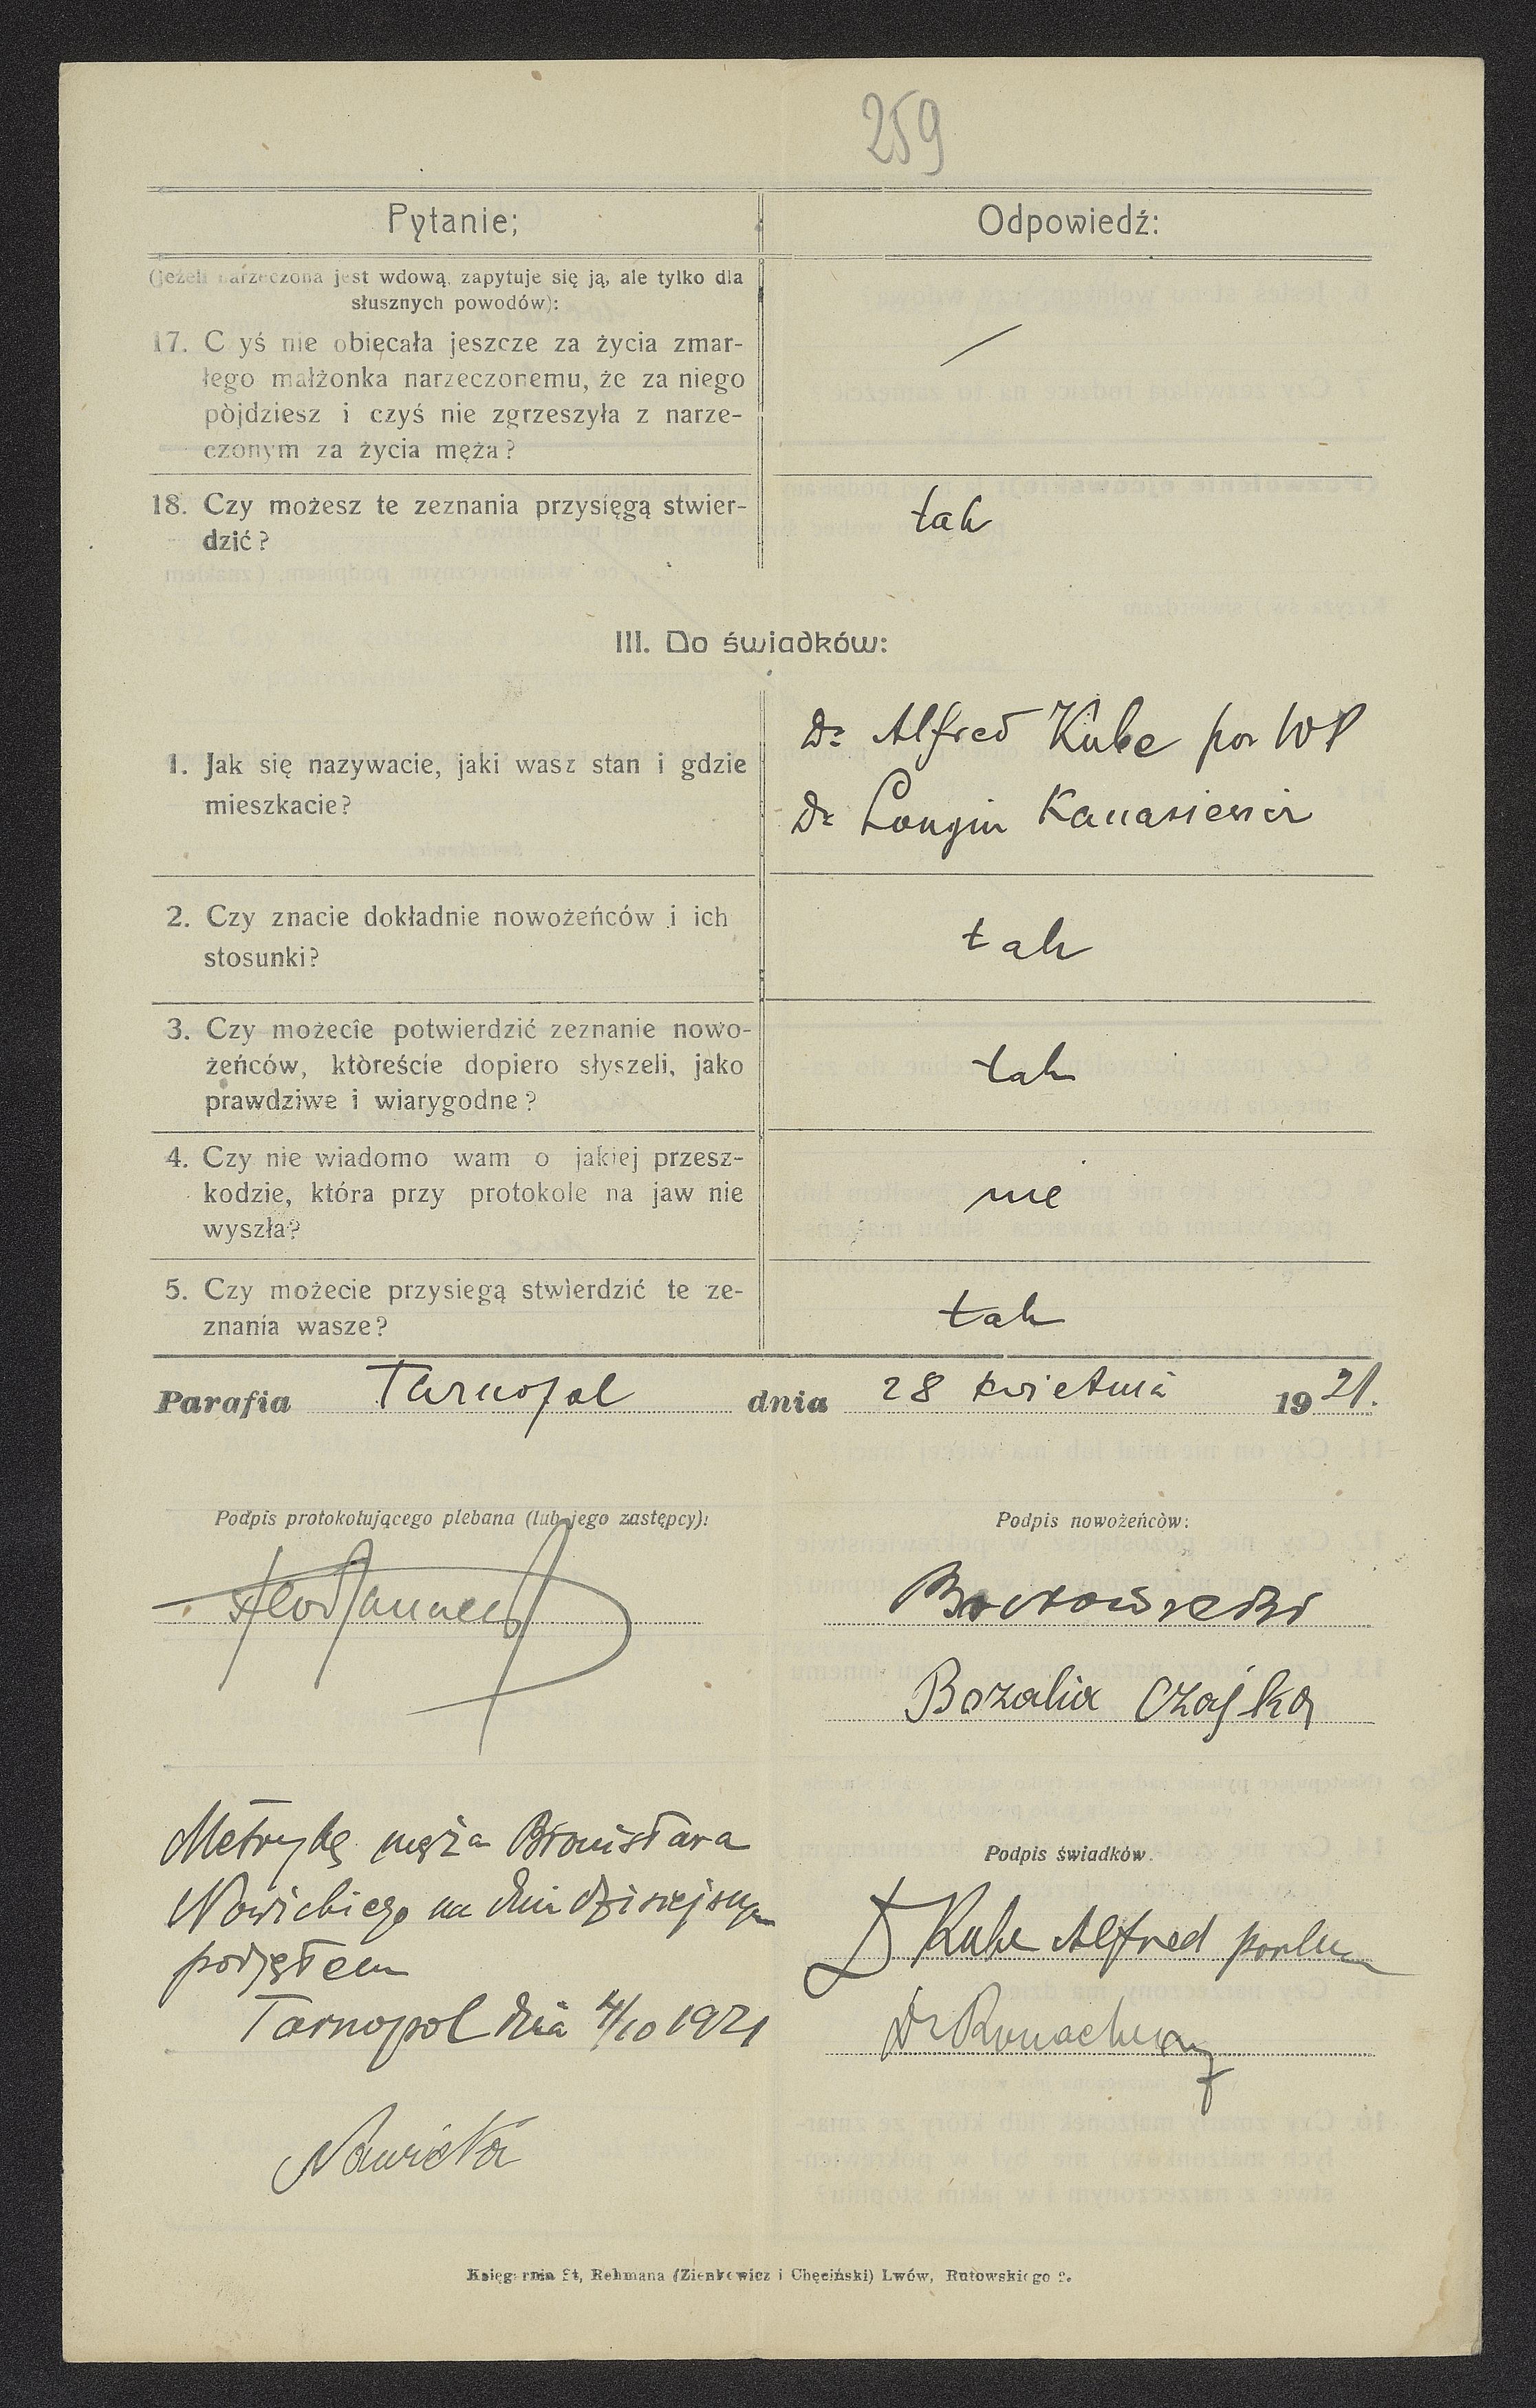 259
Pytanie;
Odpowiedź:
(jeżeli narzeczona jest wdową, zapytuje się ją, ale tylko dla
słusznych powodów):
17. C yś nie obięcała jeszcze za życia zmar-
łego małżonka narzeczonemu, że za niego
pòjdziesz i czyś nie zgrzeszyła z narze-
czonym za życia męża?
18. Czy możesz te zeznania przysięgą stwier-
dzić?
tak
III. Do świadków:
1. Jak się nazywacie, jaki wasz stan i gdzie
mieszkacie?
Dr Alfred Kube por WP
Dr Longin
2. Czy znacie dokładnie nowożeńców i ich
stosunki?
tak
3. Czy możecie potwierdzić zeznanie nowo-
żeńców, któreście dopiero słyszeli, jako
prawdziwe i wiarygodne?
tak
4. Czy nie wiadomo wam o jakiej przesz-
kodzie, która przy protokole na jaw nie
wyszła?
nie
5. Czy możecie przysiegą stwierdzić te ze-
znania wasze?
tak
Parafia Tarnopol dnia 28 kwietnia 1921.
Podpis protokołującego plebana (lub jego zastępcy):
Podpis nowożeńców:
Bozalia Czajka
Metrykę męża Bronisława
Nowickiego na dniu dzisiejszym
podjąłem
Tarnopol dnia 4/10 1921
Podpis świadków.
Dr Kube Alfred
Dr
Księgarnia St, Rehmana (Zienkowicz i Chęciński) Lwów, Rutowskiego 2.